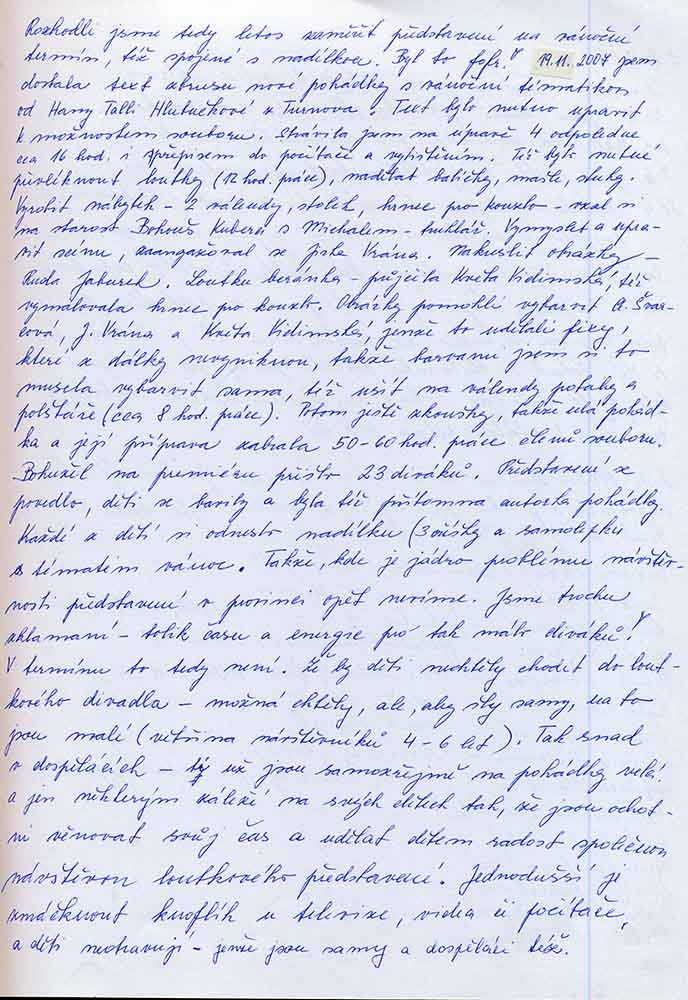 Rozhodli jsme tedy letos zaměřit představení na vánoční
termín, též spojené s nadílkou. Byl to fofr! 19.11. 2007 jsem
dostala text zbrusu nové pohádky s vánoční tématikou
od Hany Talli Hlubučkové z Turnova. Text bylo nutno upravit
k možnostem souboru. Strávila jsem na úpravě 4 odpoledne
cca 16 hod. i s přepisem do počítače a vytištěním. Též bylo nutné
převlíknout loutky (12 hod. práce), nadělat balíčky, mašle, stuhy.
Vyrobit nábytek – 2 válendy, stolek, hrnec pro kouzlo – vzal si
na starost Bohouš Kubera s Michalem – truhlář. Vymyslet a upra-
vit scénu, zaangažoval se Jirka Vrána. Nakreslit obrázky –
Ruda Jaburek. Loutku beránka – půjčila Květa Vidimská, též
vymalovala hrnec pro kouzlo. Obrázky pomohli vybarvit A. Švar-
cová, J. Vrána a Květa Vidimská, jenže to udělali fixy,
které z dálky nevyniknou, takže barvami jsem si to
musela vybarvit sama, též ušít na válendy potahy a
polštáře (cca 8 hod. práce). Potom ještě zkoušky, takže celá pohád-
ka a její příprava zabrala 50-60 hod. práce členů souboru.
Bohužel na premiéru přišlo 23 diváků. Představení se
povedlo, děti se bavily a byla též přítomna autorka pohádky.
Každé z dětí si odneslo nadílku (3 oříšky a samolepku
s tématem vánoc. Takže, kde je jádro problému návštěv-
nosti představení v prosinci opět nevíme. Jsme trochu
zklamaní – tolik času a energie pro tak málo diváků!
V termínu to tedy není. Že by děti nechtěly chodit do lout-
kového divadla – možná chtěly, ale, aby šly samy, na to
jsou malí (většina návštěvníků 4-6 let). Tak snad
v dospělácích – ti už jsou samozřejmě na pohádky velcí
a jen některým záleží na svých dětech tak, že jsou ochot-
ni věnovat svůj čas a udělat dětem radost společnou
návštěvou loutkového představení. Jednodušší je
zmáčknout knoflík u televize, videa či počítače,
a děti neotravují – jenže jsou samy a dospěláci též.